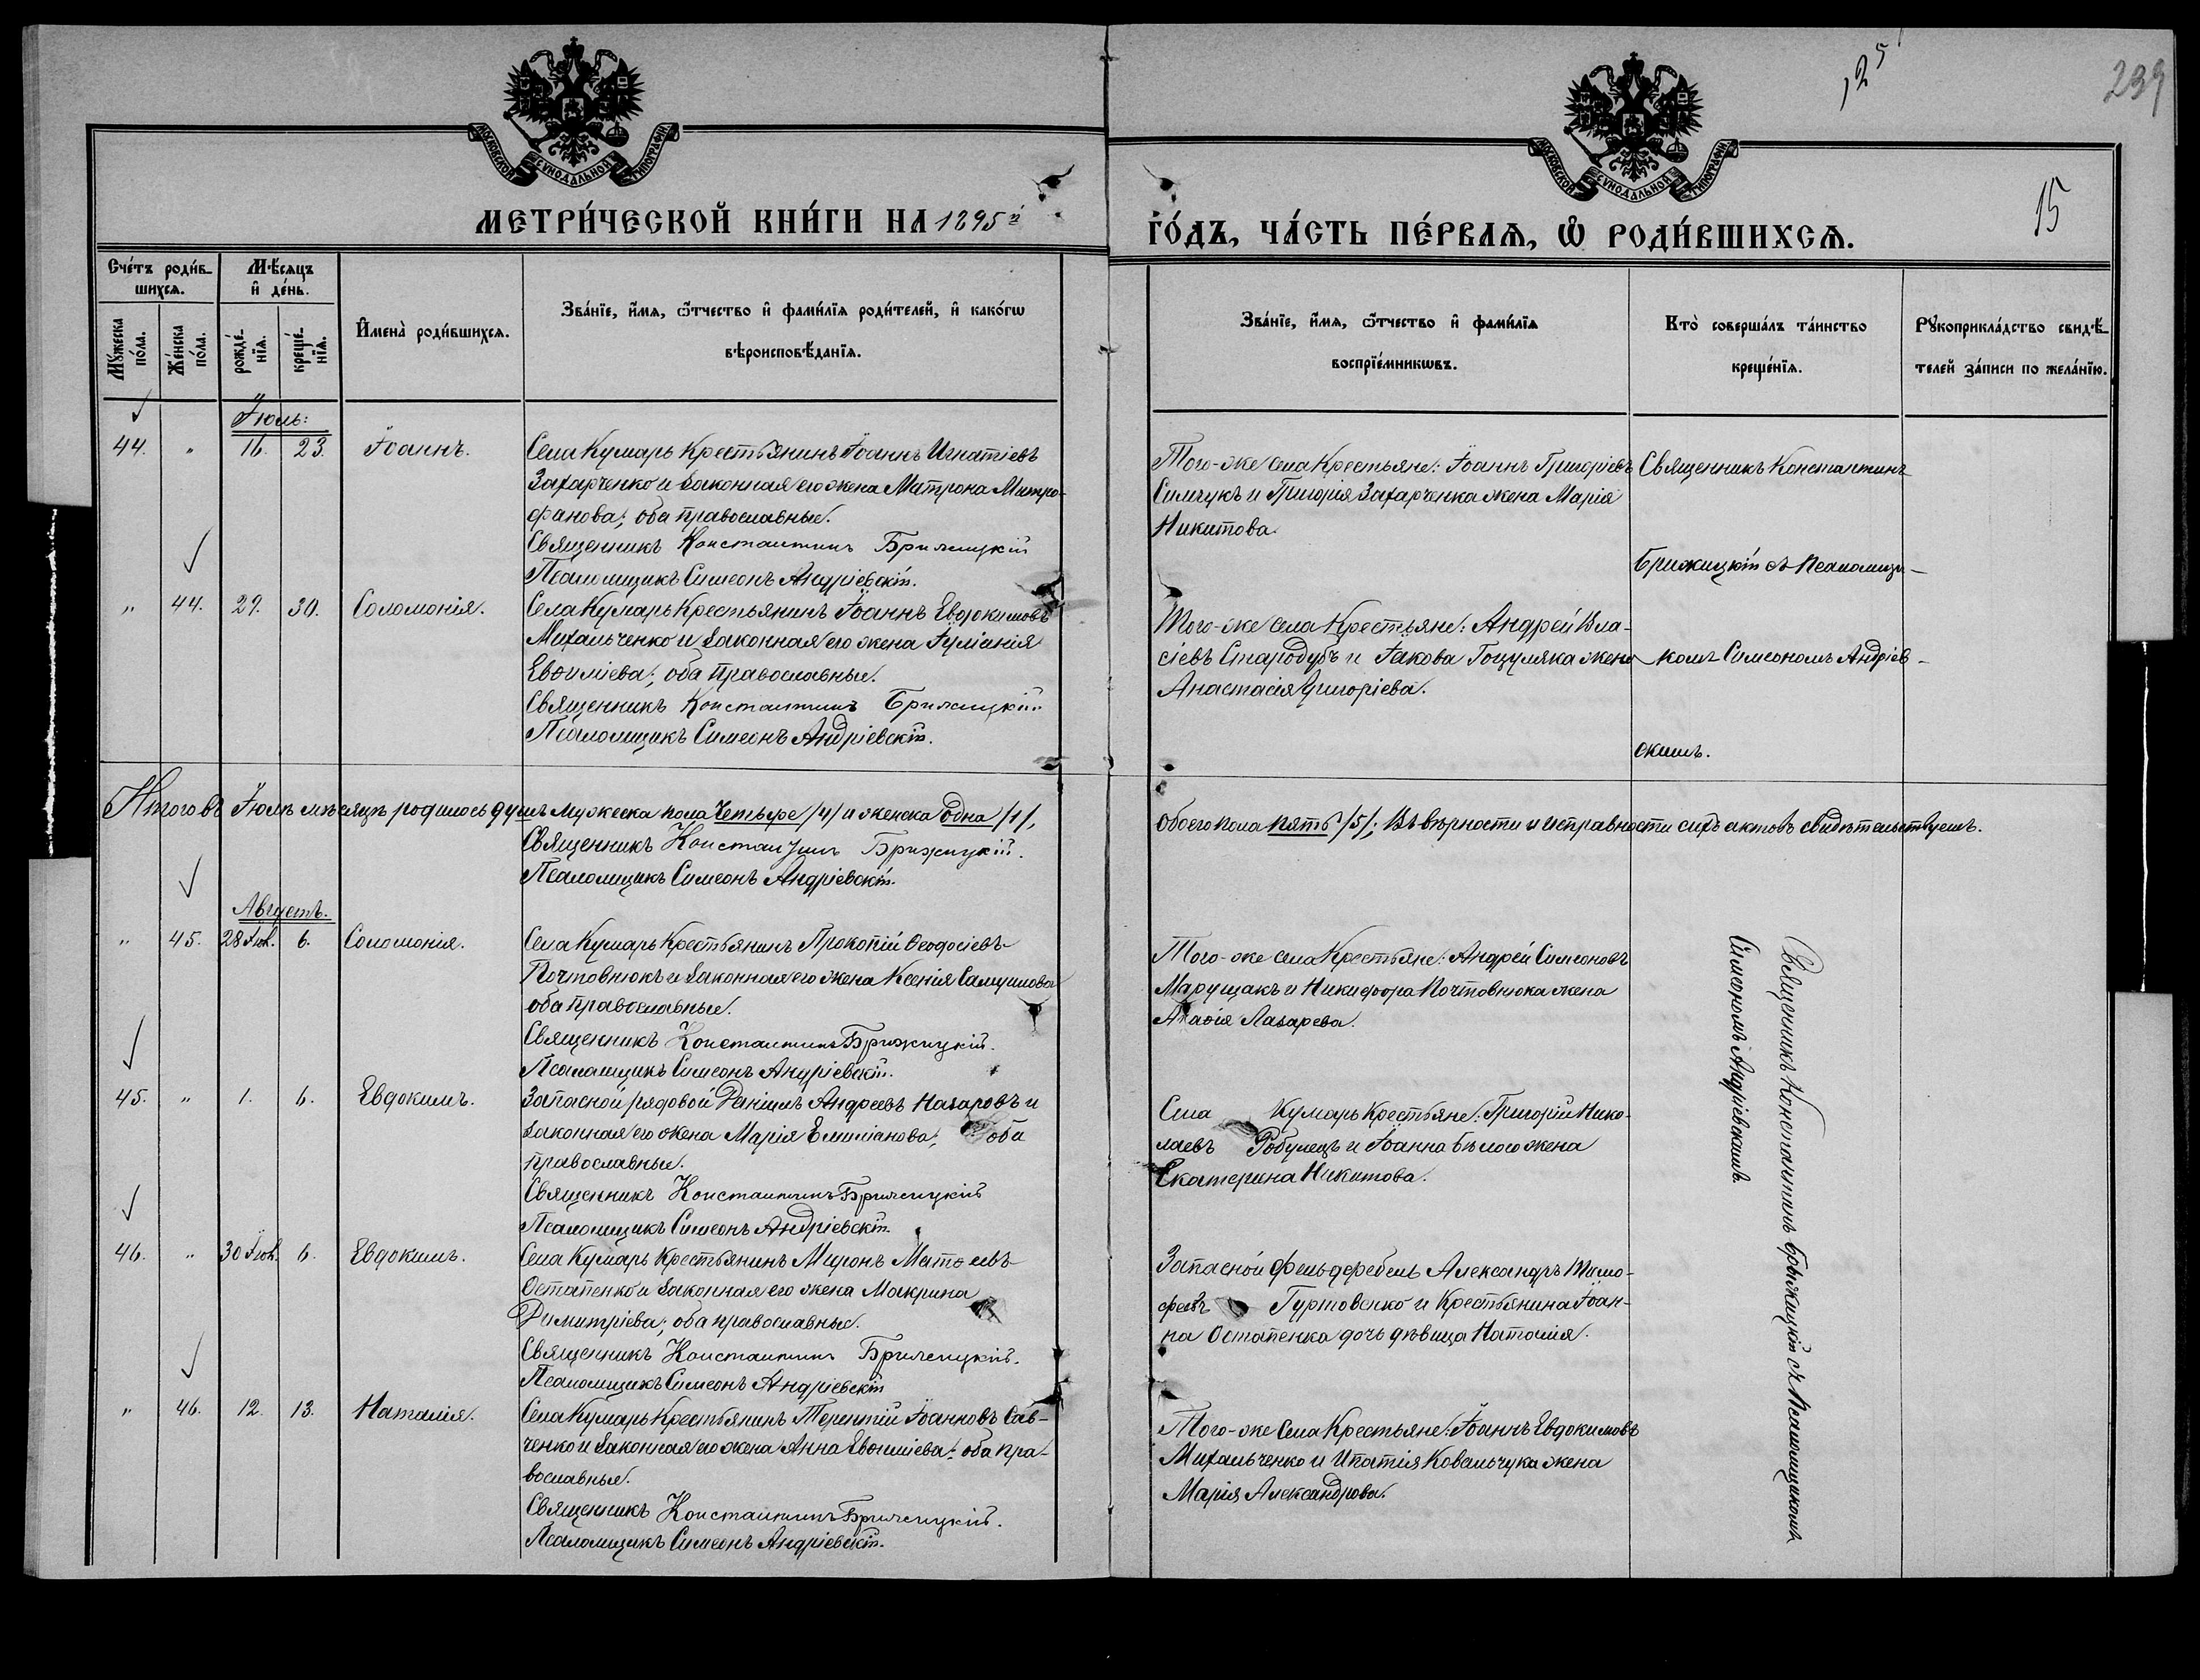 125
239
15
МОСКОВСКОЙ СУНОДАЛЬНОЙ ТИПОГРАФІИ
МОСКОВСКОЙ СУНОДАЛЬНОЙ ТИПОГРАФІИ
МЕТРИ́ЧЕСКОЙ КНИ́ГИ НА 1895й
ГО́ДЪ, ЧА́СТЬ ПЕ́РВАѦ, Ѡ РОДИ́ВШИХСѦ.
Сче́тъ роди́в-
шихсѧ.
Мѣ́сѧцъ
и҆ де́нь.
Мꙋ́жеска по́ла.
Же́нска по́ла.
рожде́-нїѧ.
креще́-нїѧ.
И҆мена̀ роди́вшихсѧ.
Зва́нїе, и҆́мѧ, ѻ҆́тчество и҆ фами́лїѧ роди́телей, и҆ како́гѡ
вѣроисповѣ́данїѧ.
Зва́нїе, и҆́мѧ, ѻ҆́тчество и҆ фами́лїѧ
воспрїе́мникѡвъ.
Кто̀ соверша́лъ та́инство
креще́нїѧ.
Рꙋкоприкла́дство свидѣ́-
телей за́писи по жела́нїю.
Іюль:
44. " 16. 23. Іоаннъ.
Села Кумарь Крестьянинъ Іоаннъ Игнатіевъ
Захарченко и законная его жена Матрона Митро-
фанова; оба православные.
Священникъ Константинъ Брижицкій
Псаломщикъ Симеонъ Андріевскій.
Того-же села Крестьяне: Іоаннъ Григоріевъ
Симчукъ и Григорія Захарченка жена Марія
Никитова.
Священникъ Константинъ
Брижицкій съ Псаломщи-
комъ Симеономъ Андріев-
скимъ.
" 44. 29. 30. Соломонія.
Села Кумарь Крестьянинъ Іоаннъ Евдокимовъ
Михальченко и законная его жена Іуліанія
Евѳиміева; оба православные.
Священникъ Константинъ Брижицкій
Псаломщикъ Симеонъ Андріевскій.
Того-же села Крестьяне: Андрей Вла-
сіевъ Стародубъ и Іакова Гоцуляка жена
Анастасія Григоріева.
Итого въ Іюлѣ мѣсяцѣ родилось душъ мужеска пола Четыре /4/ и женска Одна /1/,
обоего пола пять /5/; Въ вѣрности и исправности сихъ актовъ свидѣтельствуемъ.
Священникъ Константинъ Брижицкій.
Псаломщикъ Симеонъ Андріевскій.
Августъ.
" 45. 28 Іюл. 6. Соломонія.
Села Кумарь Крестьянинъ Прокопій Ѳеодосіевъ
Почтовнюкъ и законная его жена Ксенія Самуилова
оба православные.
Священникъ Константинъ Брижицкій.
Псаломщикъ Симеонъ Андріевскій.
Того-же села Крестьяне: Андрей Симеоновъ
Марущакъ и Никифора Почтовнюка жена
Агаѳія Лазарева.
Священникъ Константинъ Брижицкій съ Псаломщикомъ
Симеономъ Андріевскимъ.
45. " 1. 6. Евдокимъ.
Запасной рядовой Даніилъ Андреевъ Назаровъ и
законная его жена Марія Емиліанова; оба
православные.
Священникъ Константинъ Брижицкій
Псаломщикъ Симеонъ Андріевскій.
Села Кумарь Крестьяне: Григорій Нико-
лаевъ Робулецъ и Іоанна Бѣлого жена
Екатерина Никитова.
46. " 30 Іюл. 6. Евдокимъ.
Села Кумарь Крестьянинъ Миронъ Матѳеевъ
Остапенко и законная его жена Макрина
Димитріева; оба православные.
Священникъ Константинъ Брижицкій.
Псаломщикъ Симеонъ Андріевскій
Запасной Фельдфебель Александръ Тимо-
феевъ Гуртовенко и Крестьянина Іоан-
на Остапенка дочь дѣвица Наталія.
" 46. 12. 13. Наталія.
Села Кумарь Крестьянинъ Терентій Іоанновъ Сав-
ченко и законная его жена Анна Евѳиміева; оба пра-
вославные.
Священникъ Константинъ Брижицкій.
Псаломщикъ Симеонъ Андріевскій.
Того-же Села Крестьяне: Іоаннъ Евдокимовъ
Михальченко и Ипатія Ковальчука жена
Марія Александрова.